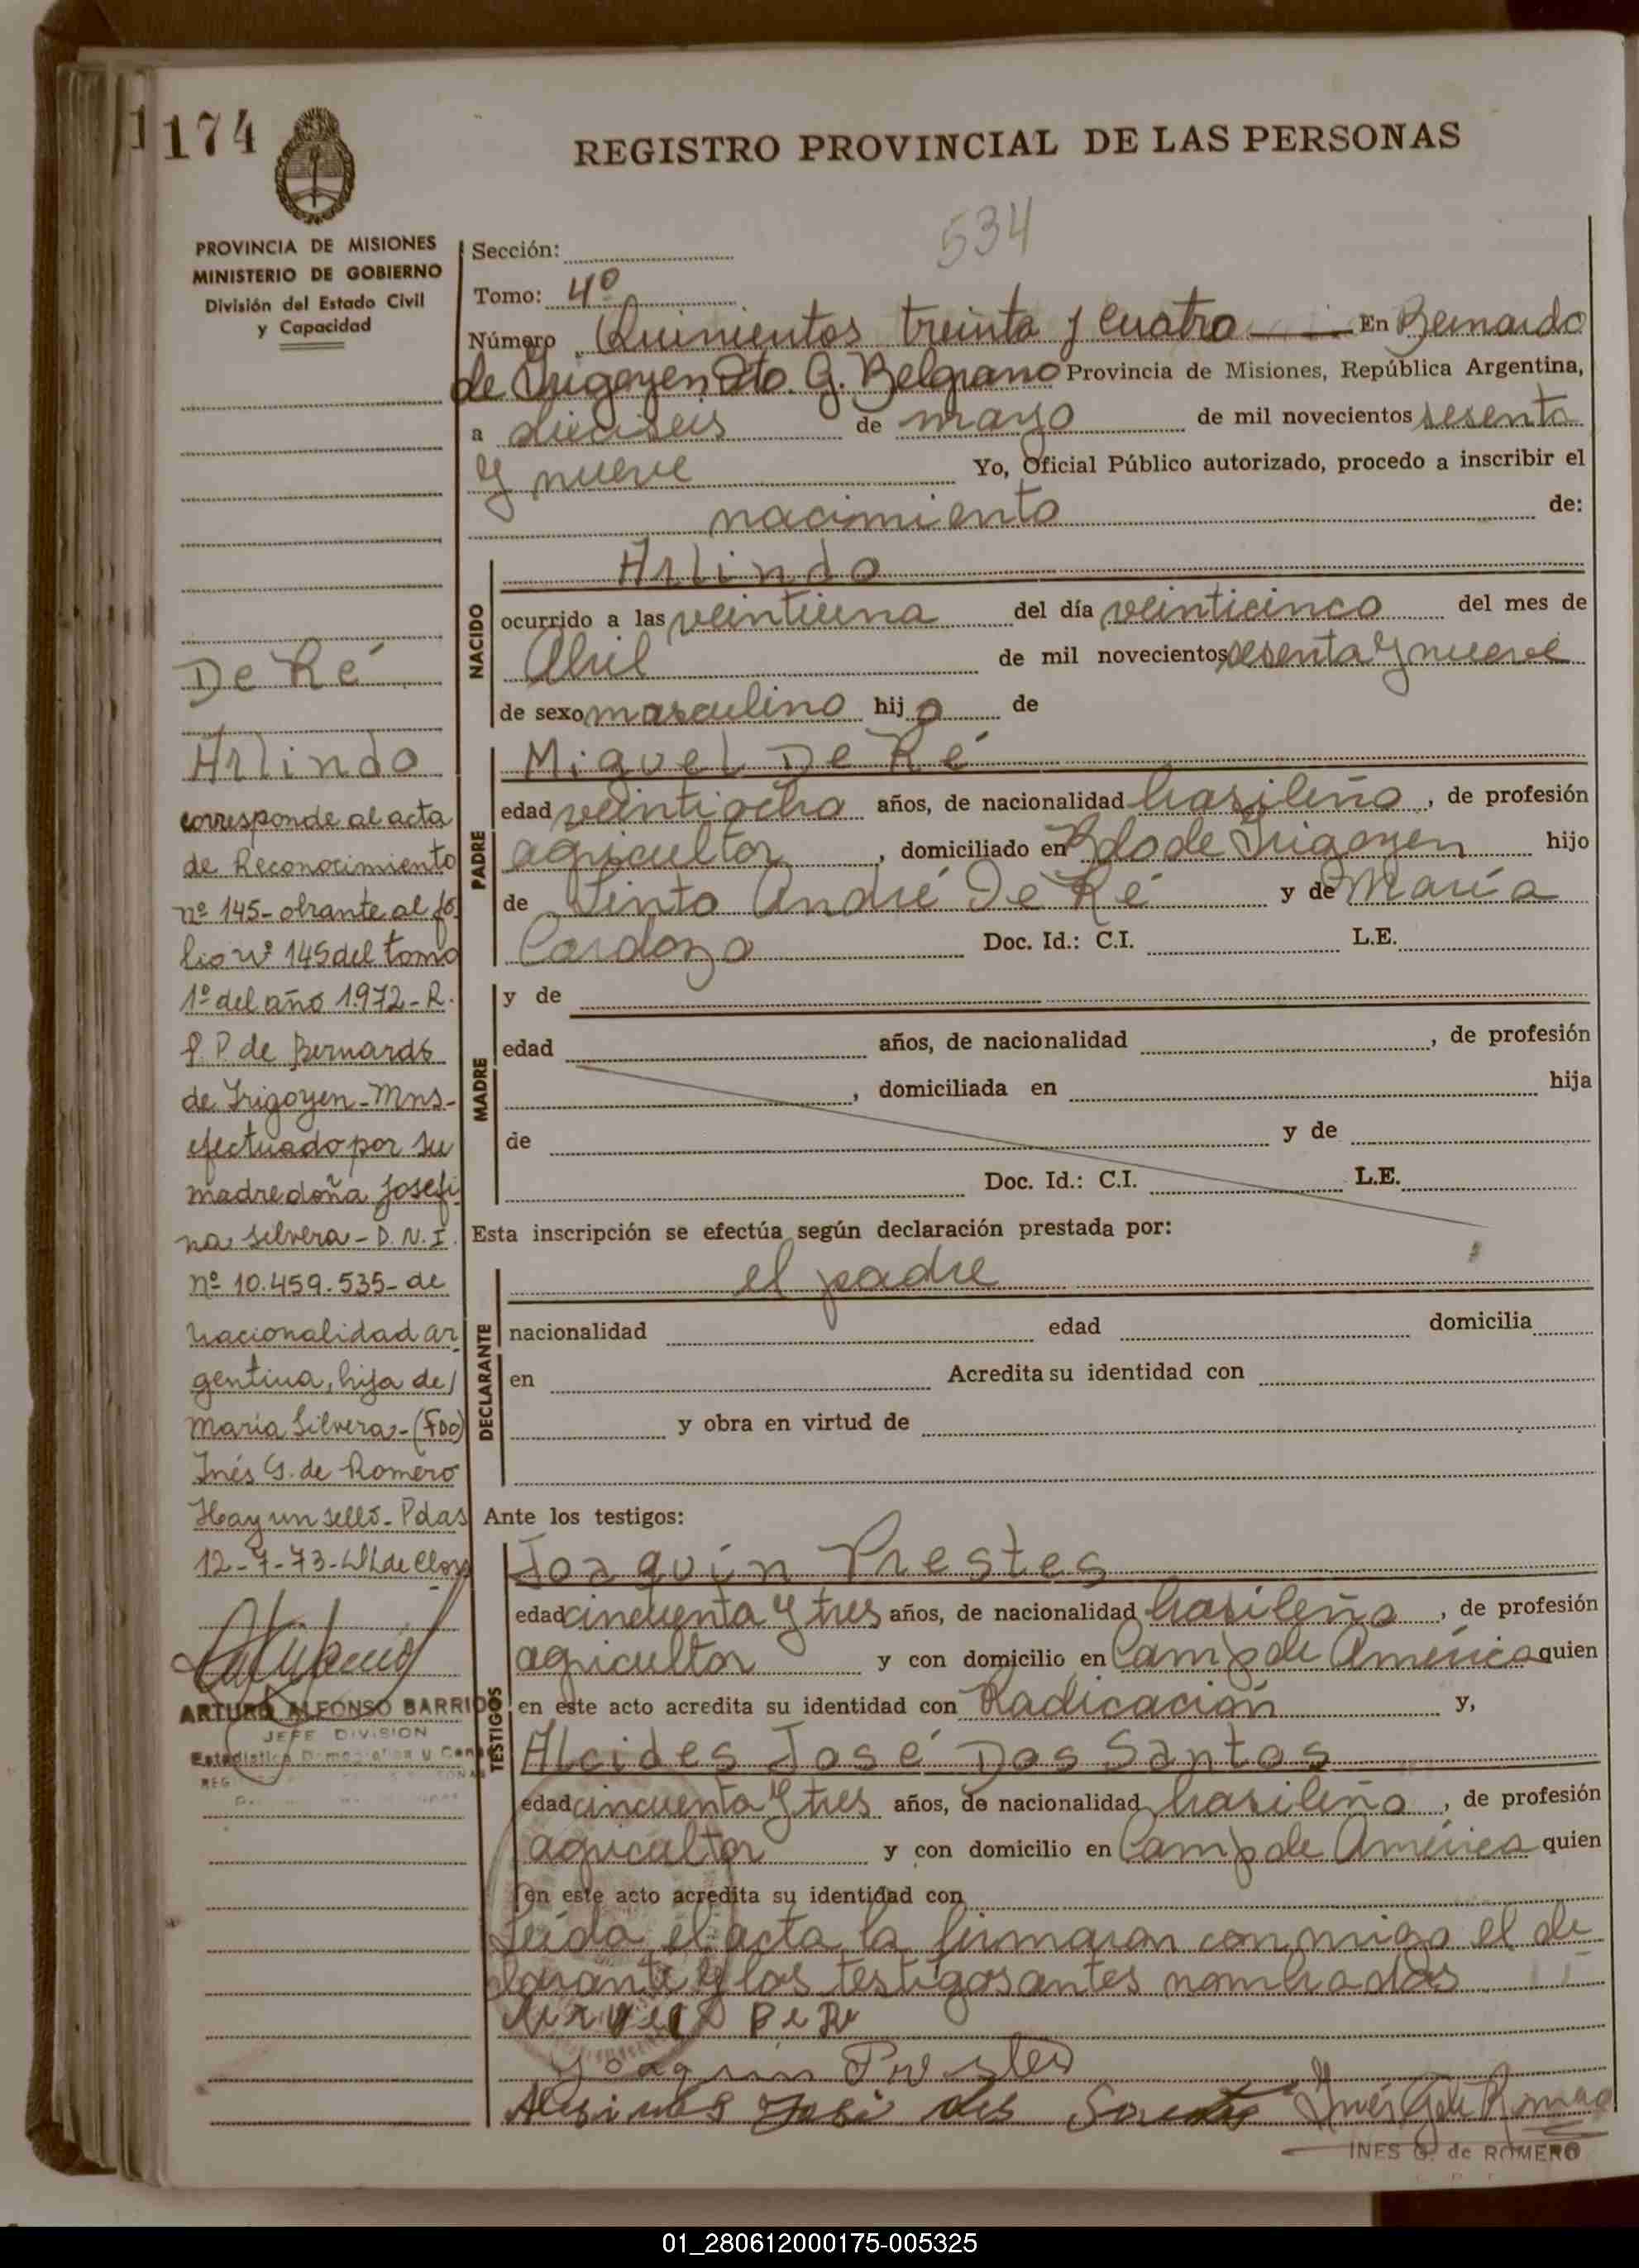 1174
REGISTRO PROVINCIAL DE LAS PERSONAS
534
PROVINCIA DE MISIONES
MINISTERIO DE GOBIERNO
División del Estado Civil
y Capacidad
De Ré
Arlindo
corresponde al acta
de Reconocimiento
nº 145- obrante al fo
lio Nº 145 del tomo
1º del año 1.972- R.
P. P. de Bernardo
de Irigoyen- Mns-
efectuado por su
madre doña Josefi
na Silvera- D.N.I.
nº 10.459.535- de
nacionalidad ar
gentina, hija de
María Silvera- (FDO)
Inés G. de Romero
Hay un sello- Pdas
12-7-73-
ARTURO ALFONSO BARRIOS
JEFE DIVISION
Sección:
Tomo: 4º
Número Quinientos treinta y cuatro En Bernardo
de Irigoyen Dto. G. Belgrano Provincia de Misiones, República Argentina,
a dieciseis de mayo de mil novecientos sesenta
y nueve Yo, Oficial Público autorizado, procedo a inscribir el
nacimiento de:
NACIDO
Arlindo
ocurrido a las veintiuna del día veinticinco del mes de
Abril de mil novecientos sesenta y nueve
de sexo masculino hijo de
PADRE
Miguel De Ré
edad veintiocho años, de nacionalidad brasileño, de profesión
agricultor, domiciliado en Bdo de Irigoyen hijo
de Sinto André De Ré y de María
Cardozo Doc. Id.: C.I. L.E.
MADRE
y de
edad años, de nacionalidad , de profesión
, domiciliada en hija
de y de
Doc. Id.: C.I. L.E.
Esta inscripción se efectúa según declaración prestada por:
DECLARANTE
el padre
nacionalidad edad domicilia
en Acredita su identidad con
y obra en virtud de
Ante los testigos:
TESTIGOS
Joaquín Prestes
edad cincuenta y tres años, de nacionalidad brasileño, de profesión
agricultor y con domicilio en Camp de América quien
en este acto acredita su identidad con Radicación y,
Alcides José Dos Santos
edad cincuenta y tres años, de nacionalidad brasileño, de profesión
agricultor y con domicilio en Camp de América quien
en este acto acredita su identidad con
Leida el acta la firmaron conmigo el de
clarante y los testigos antes nombrados
Miguel De Re
Joaquin Prestes
Inés G de Romero
INES G. de ROMERO
01_280612000175-005325